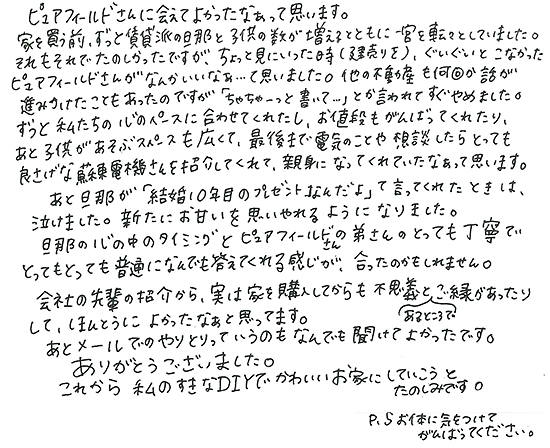 ピュアフィールドさんに会えてよかったなぁって思います。
家を買う前、ずっと賃貸派の旦那と子供の数が増えるとともに一宮を転々としていました。
それもそれでたのしかったですが、ちょっと見にいった時(建売りを)、ぐいぐいとこなかった
ピュアフィールドさんがなんかいいなぁ…て思いました。他の不動産も何回か話が
進みかけたこともあったのですが「ちゃちゃーっと書いて…」とか言われてすぐやめました。
ずっと私たちの心のペースに合わせてくれたし、お値段もがんばってくれたり、
あと子供があそぶスペースも広くて、最後まで電気のことや相談したらとっても
良さげな蘇東電機さんを紹介してくれて、親身になってくれていたなぁって思います。
あと旦那が「結婚10年目のプレゼントなんだよ」て言ってくれたときは、
泣けました。新たにお互いを思いやれるようになりました。
旦那の心の中のタイミングとピュアフィールドさんの弟さんのとっても丁寧で
とってもとっても普通になんでも答えてくれる感じが、合ったのかもしれません。
会社の先輩の紹介から、実は家を購入してからも不思議とご縁があったり
あるところで
して、ほんとうによかったなぁと思ってます。
あとメールでのやりとりっていうのもなんでも聞けてよかったです。
ありがとうございました。
これから私のすきなDIYでかわいいお家にしていこうと
たのしみです。
P.Sお体に気をつけて
がんばってください。